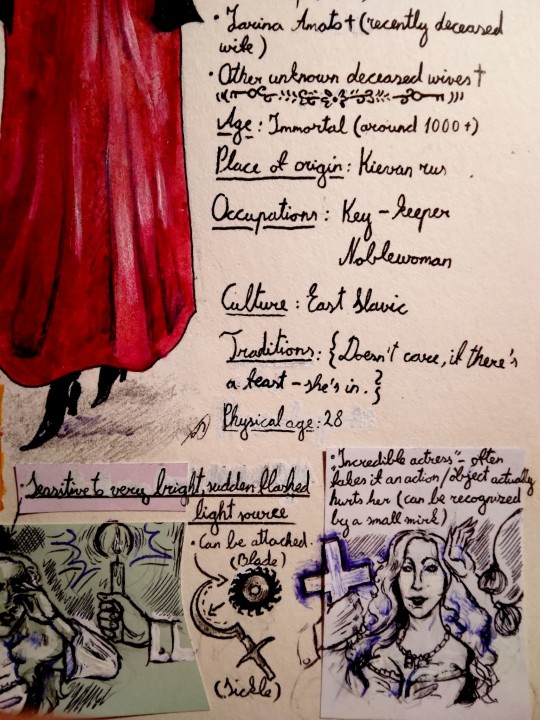 • Zarina Amato † (recently deceased
wife)
• Other unknown deceased wives †
Age : Immortal (around 1000+)
Place of origin : Kievan rus
Occupations : Key - keeper
Noblewoman
Culture : East Slavic
Traditions : {Doesn't care, if there's
a feast - she's in.}
Physical age : 28
• Sensitive to very bright, sudden flashed
light source
• Can be attached.
(Blade)
(Sickle)
• "Incredible actress" - often
fakes if an action/object actually
hurts her (can be recognized
by a small mirk)